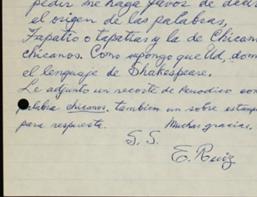 pedir me haga favor de decir
el origen de las palabras,
Zapatio o tapatias y la de Chican
chicanos. Como supongo que Ud, dom
el lenguaje de Shakespeare.
Le adjunto un recorte de Periodico con
palabra chicanos. tambien un sobre estamp
para respuesta. Muchas gracias.
S. S.
E. Ruiz